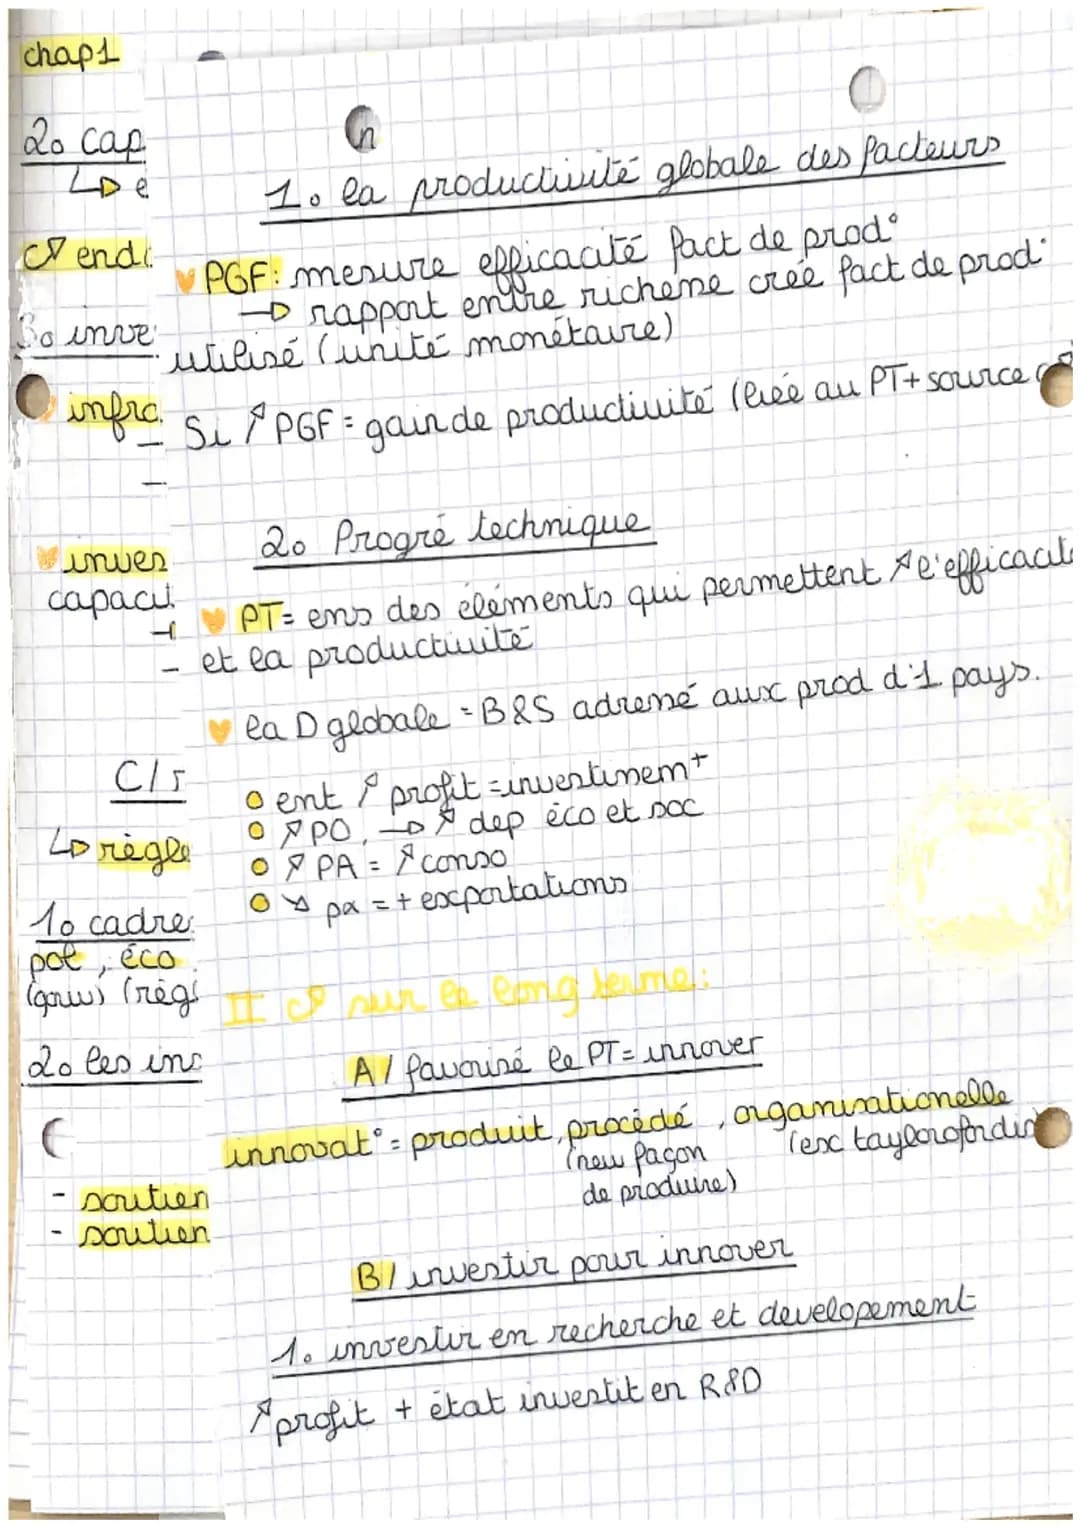 chap1
2o cap
↳ e
endo
3o inve
infra
-
-
inves
capacit
-
-
C/ r
↳ règle
1o cadre
pol, éco
(gouv) (régi
2o les ino
- soutien
- soutien
1o la productivité globale des facteurs
PGF: mesure efficacité fact de prod°
→ rapport entre richesse créé fact de prod°
utilisé (unité monétaire)
Si ↗ PGF = gain de productivité (liée au PT + source
2o Progré technique
PT = ens des éléments qui permettent ↗ l'efficacité
et la productivité
la D globale = B&S adressé aux prod d'1 pays.
ent ↗ profit = investissemt
↗ PO → ↗ dep éco et soc
↗ PA = ↗ conso
↘ px = + exportations
II sur le long terme:
A/ favorisé le PT = innover
innovat° = produit, procédé, organisationelle
(new façon (ex taylorofordis
de produire)
B/ investir pour innover
1o investir en recherche et developement
↗ profit + état investit en R&D